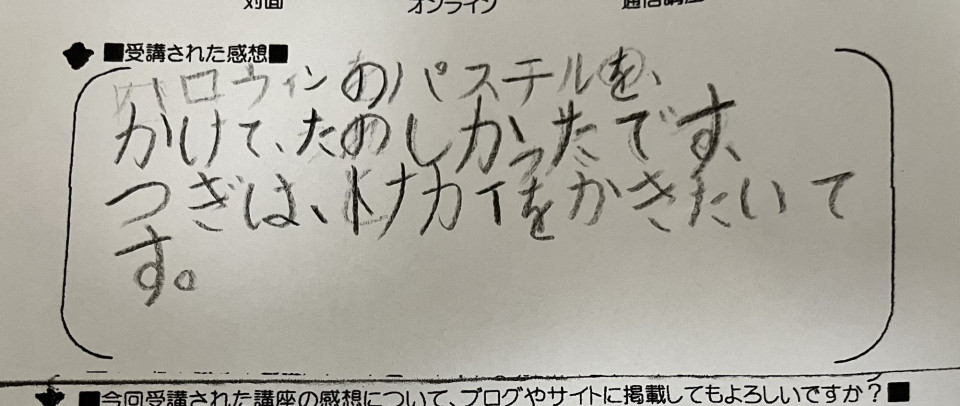 対面 オンライン 通信講座
■受講された感想■
ハロウィンのパステルを、
かけて、たのしかったです、
つぎは、トナカイをかきたいて
す。
■今回受講された講座の感想について、ブログやサイトに掲載してもよろしいですか？■